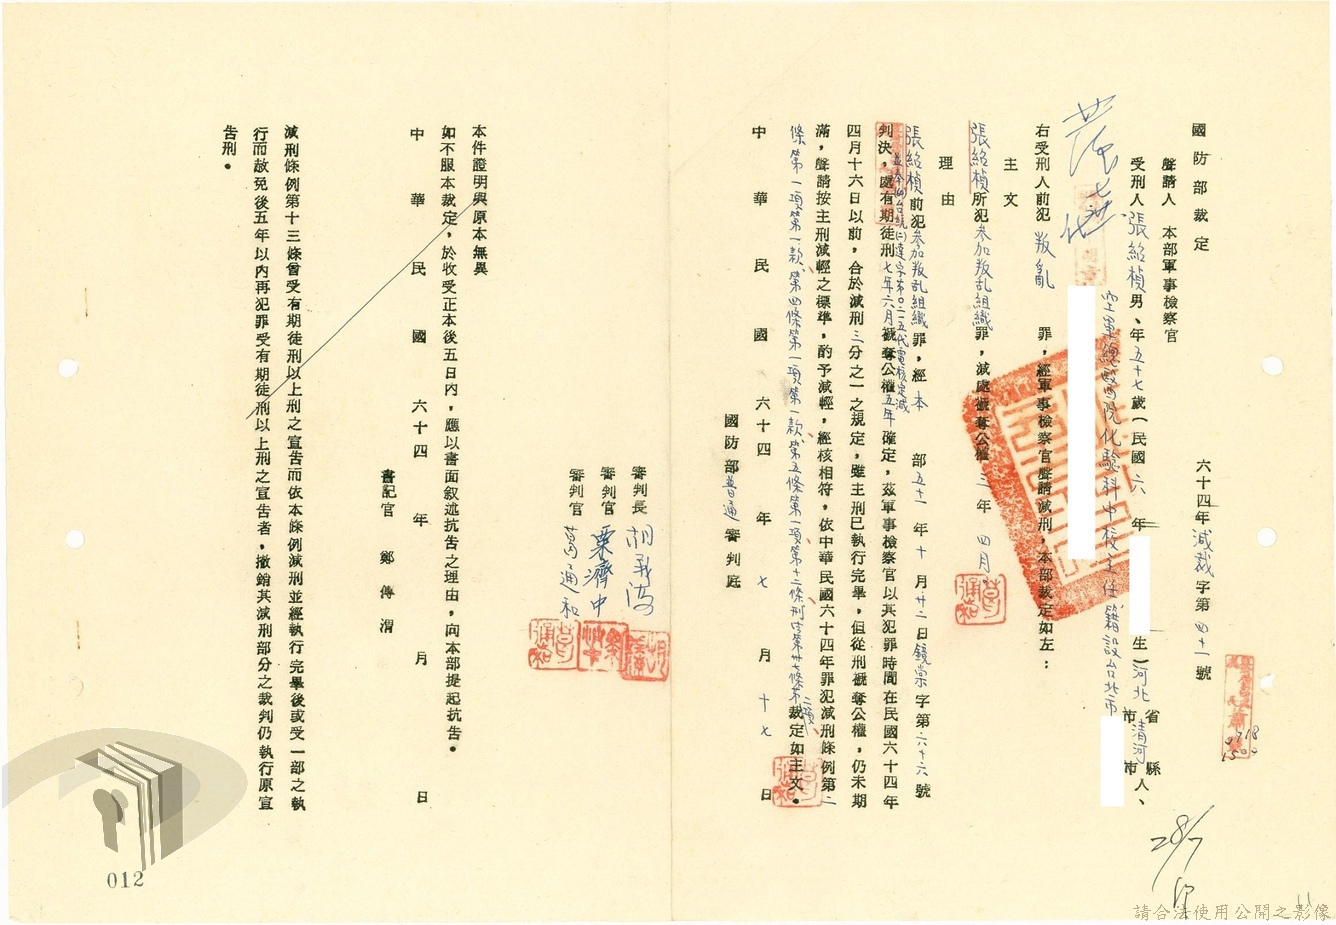 國防部裁定
六十四年減裁字第四十一號
聲請人 本部軍事檢察官
受刑人 張紹楨 男、年五十七歲(民國六年 生)河北省市清河縣市人、
空軍總醫院化驗科中校主任籍設台北市
右受刑人前犯叛亂罪,經軍事檢察官聲請減刑,本部裁定如左:
主文
張紹楨所犯參加叛乱組織罪,減處褫奪公權三年四月。
理由
張紹楨前犯參加叛乱組織罪,經本部五十一年十月廿二日鏡棠字第六十六號
並奉(四)台統(二)達字第〇二一五代電核定減
判決,處有期徒刑七年六月褫奪公權五年確定,茲軍事檢察官以其犯罪時間在民國六十四年
四月十六日以前,合於減刑三分之一之規定,雖主刑已執行完畢,但從刑褫奪公權,仍未期
滿,聲請按主刑減輕之標準,酌予減輕,經核相符,依中華民國六十四年罪犯減刑條例第二
條第一項第一款、第四條第一項第一款、第五條第一項第十二條刑法第卅七條第二項、裁定如主文。
中華民國六十四年七月十七日
國防部普通審判庭
審判長 胡
審判官 粟濟中
審判官 葛通和
本件證明與原本無異
如不服本裁定,於收受正本後五日內,應以書面叙述抗告之理由,向本部提起抗告。
中華民國六十四年 月 日
書記官 鄭傳渭
減刑條例第十三條曾受有期徒刑以上刑之宣告而依本條例減刑並經執行完畢後或受一部之執
行而赦免後五年以內再犯罪受有期徒刑以上刑之宣告者,撤銷其減刑部分之裁判仍執行原宣
告刑。
012
28/7
11
請合法使用公開之影像